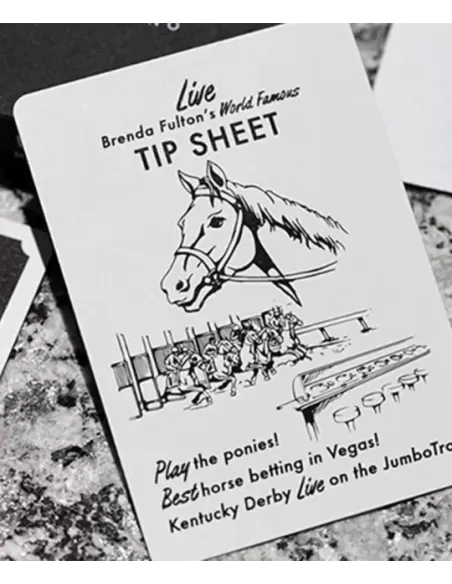 Live
Brenda Fulton's World Famous
TIP SHEET
Play the ponies!
Best horse betting in Vegas!
Kentucky Derby Live on the JumboTra